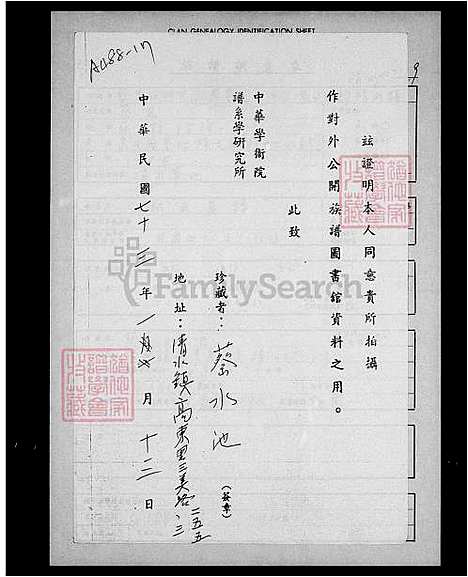 CLAN GENEALOGY IDENTIFICATION SHEET
A488-17
茲證明本人同意貴所拍攝
作對外公開族譜圖書館資料之用。
此致
中華學術院
譜系學研究所
珍藏者：蔡水池（簽章）
地址：清水鎮高東里三美路二五五
中華民國七十三年一月十三日
FamilySearch